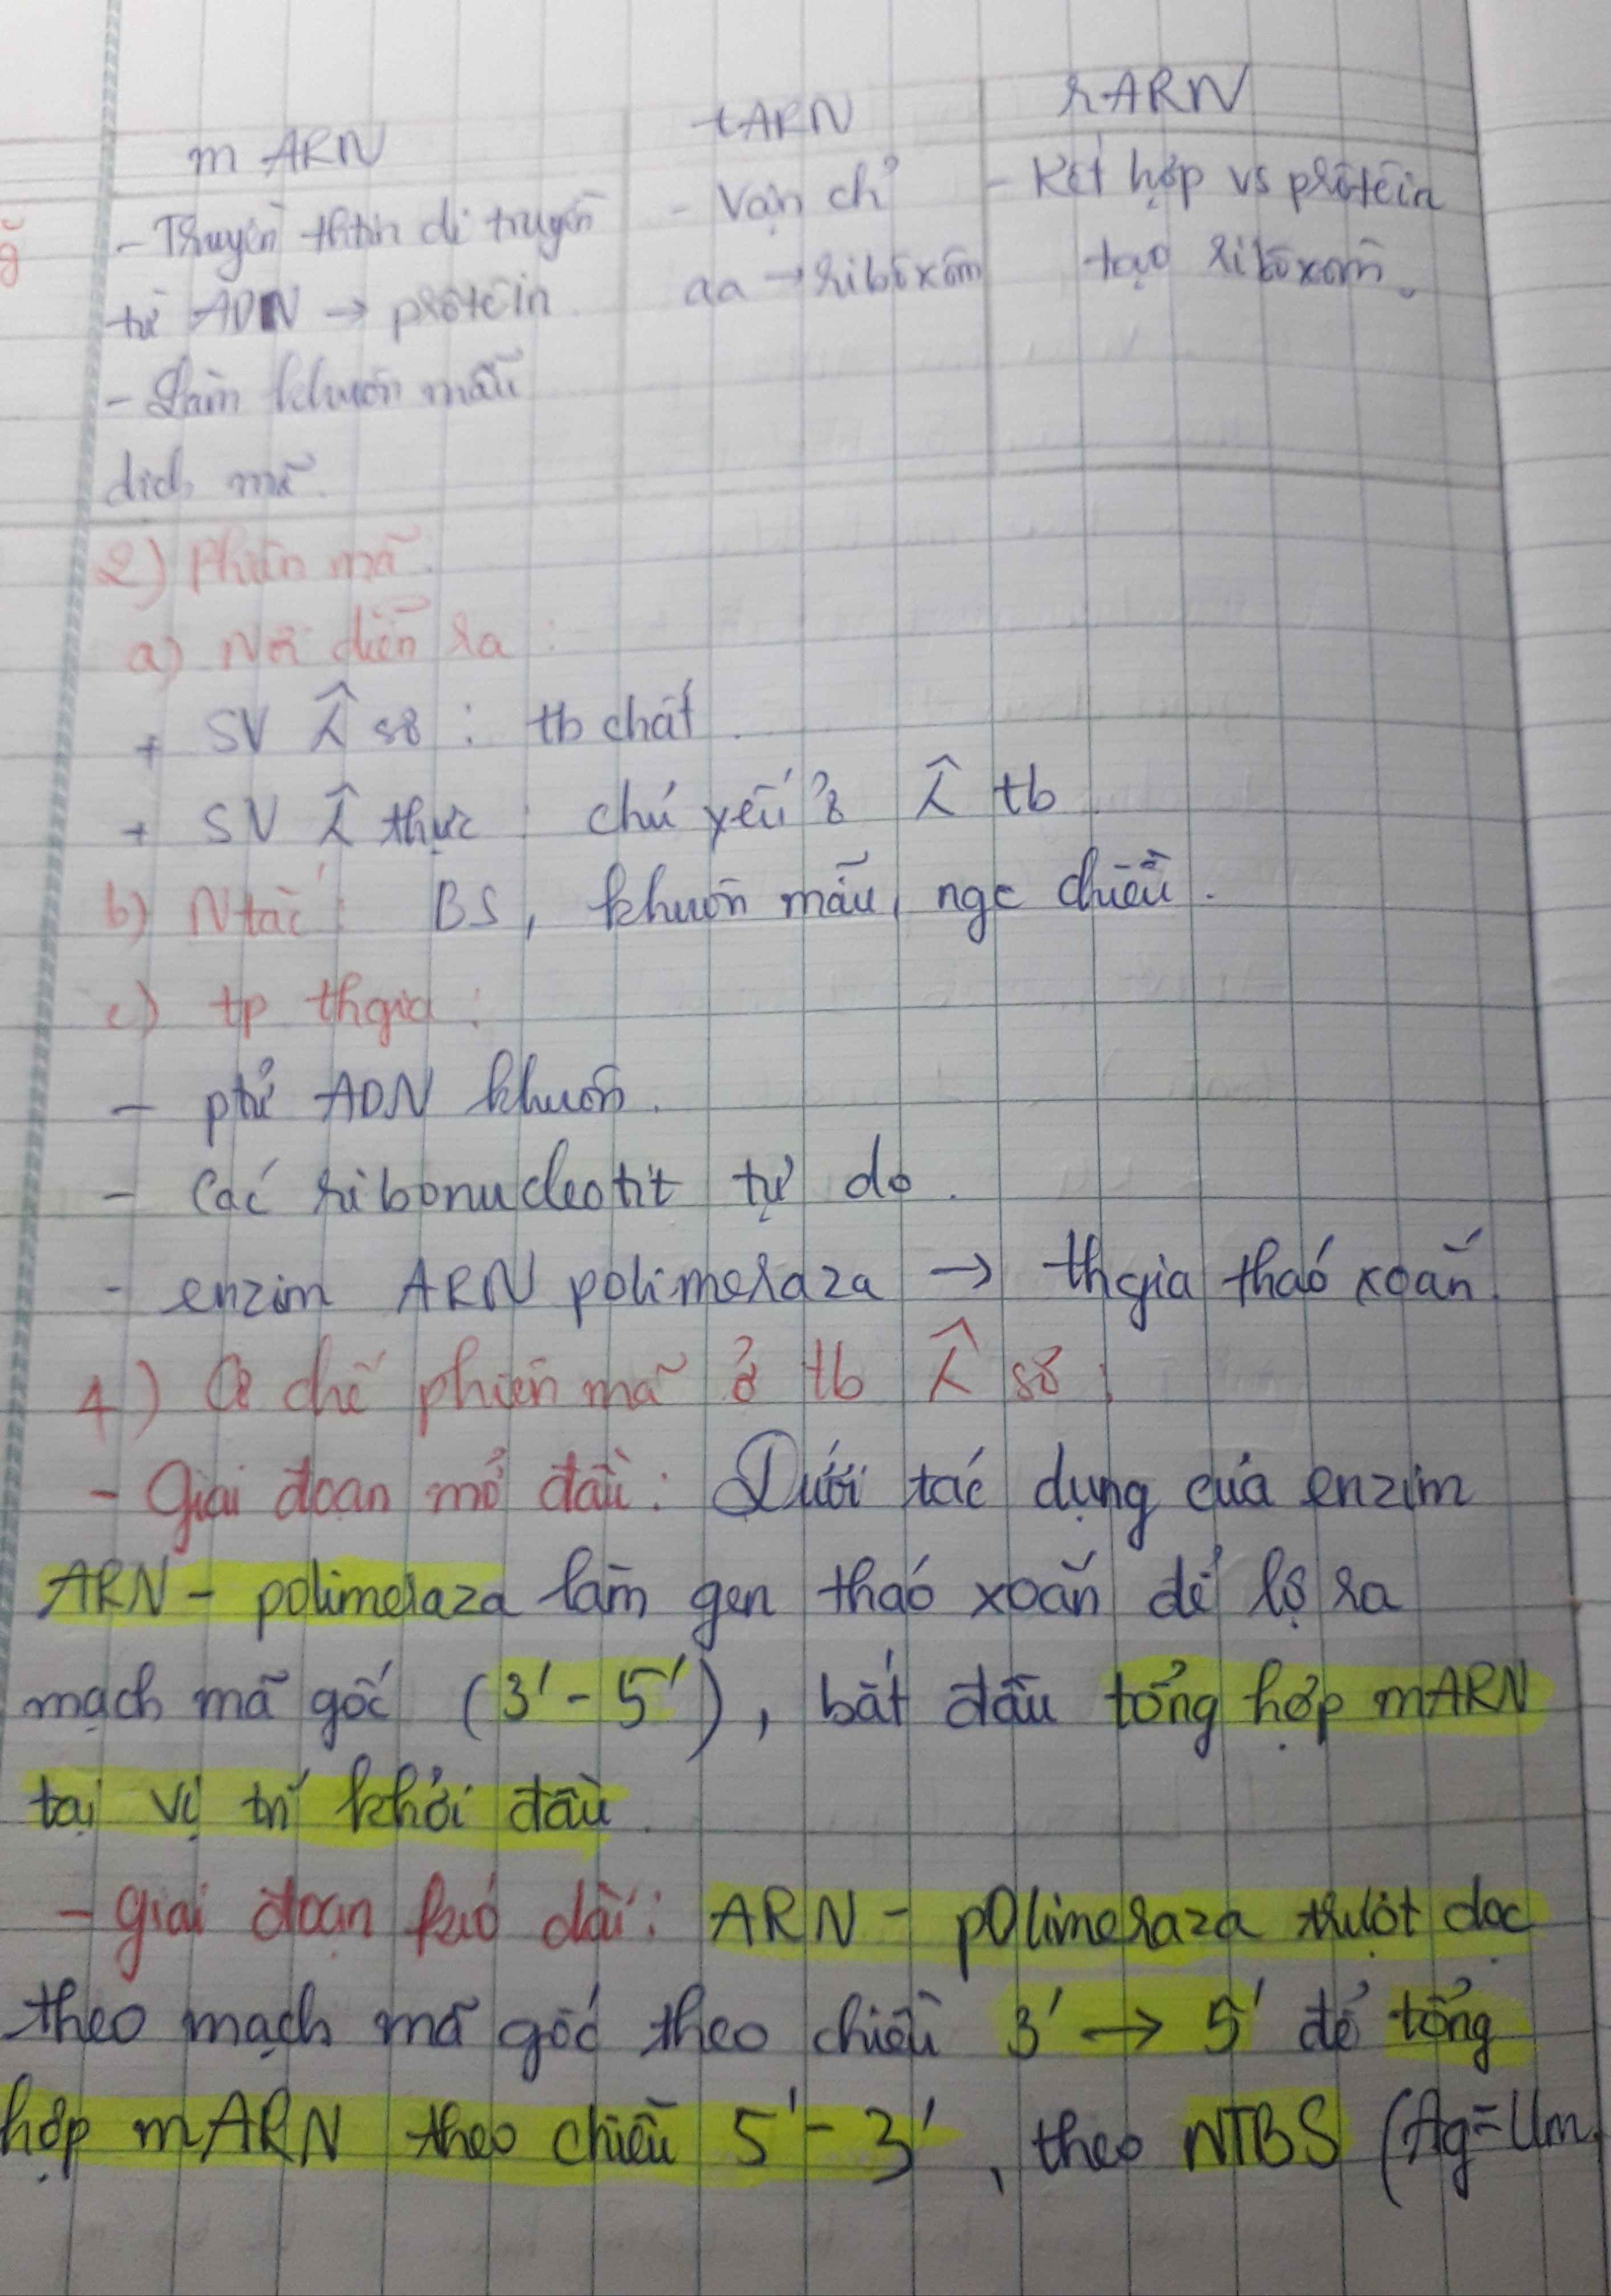 mARN tARN rARN
- Truyền thtin di truyền - Vận ch? - Kết hợp vs prôtêin
từ ADN → prôtêin. aa → ribôxôm tạo ribôxôm.
- Làm khuôn mẫu
dịch mã.
2) Phiên mã.
a) Nơi diễn ra :
+ SV λ̂ sơ : tb chất.
+ SV λ̂ thực : chủ yếu ở λ̂ tb
b) Ntắc : BS, khuôn mẫu, ngc chiều.
c) tp thgia :
- ptử ADN khuôn.
- Các ribonucleotit tự do.
- enzim ARN polimeraza → thgia tháo xoắn.
4) Cơ chế phiên mã ở tb λ̂ sơ :
- Giai đoạn mở đầu : Dưới tác dụng của enzim
ARN - polimeraza làm gen tháo xoắn để lộ ra
mạch mã gốc (3' - 5'), bắt đầu tổng hợp mARN
tại vị trí khởi đầu.
- Giai đoạn kéo dài : ARN - polimeraza trượt dọc
theo mạch mã gốc theo chiều 3' → 5' để tổng
hợp mARN theo chiều 5' - 3', theo NTBS (Ag = Um,